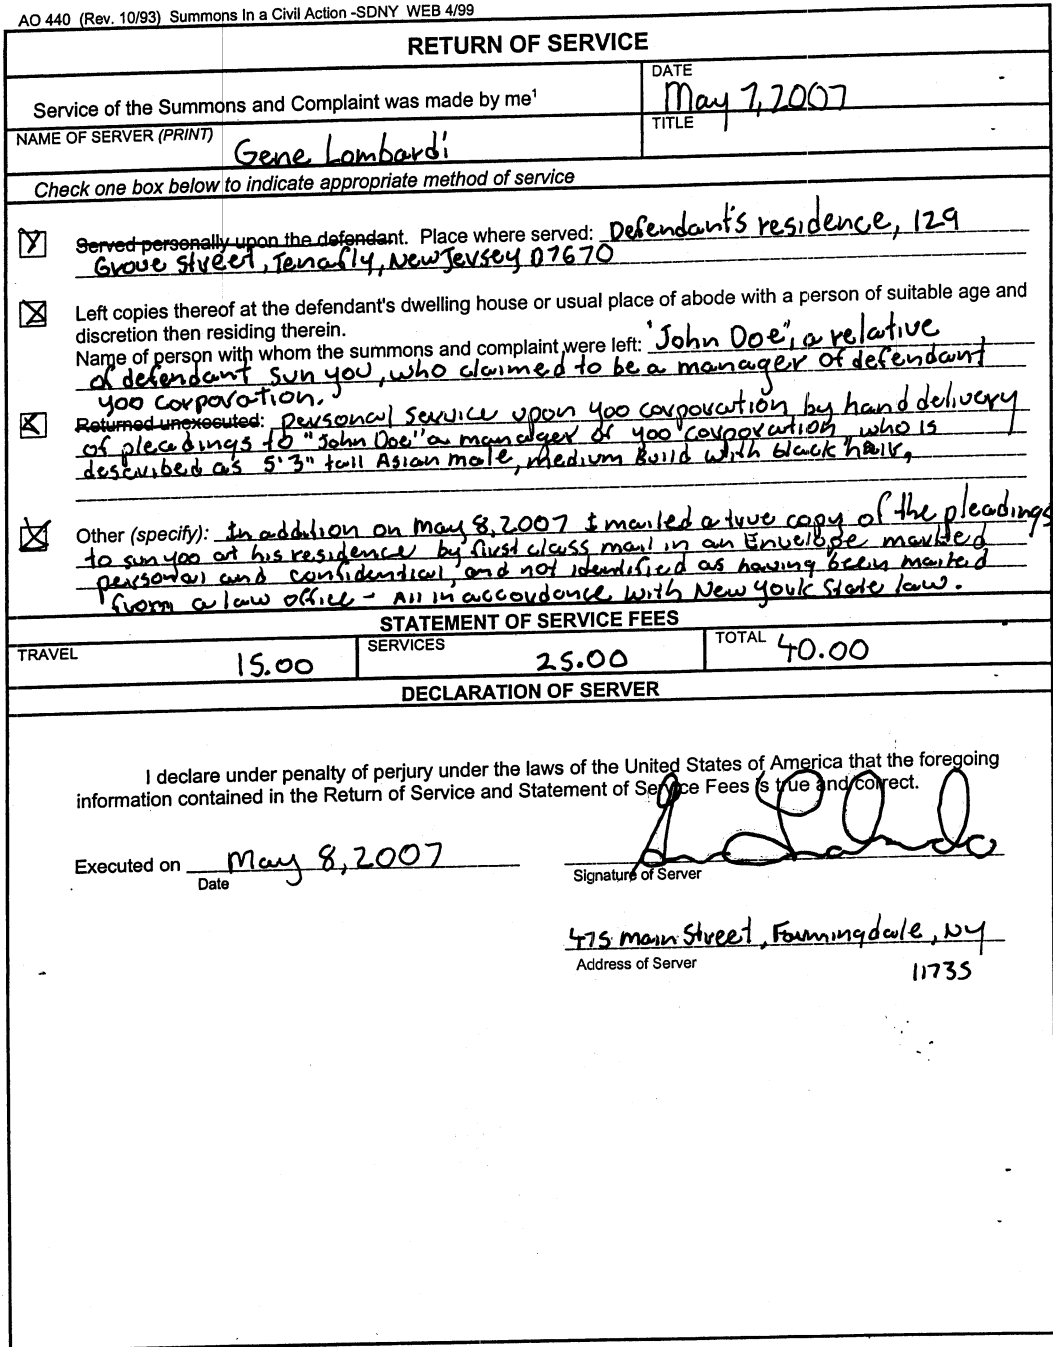 AO 440 (Rev. 10/93) Summons In a Civil Action -SDNY WEB 4/99
RETURN OF SERVICE
Service of the Summons and Complaint was made by me¹
DATE
May 7, 2007
NAME OF SERVER (PRINT)
Gene Lombardi
TITLE
Check one box below to indicate appropriate method of service
Served personally upon the defendant. Place where served: Defendant's residence, 129
Grove Street, Tenafly, New Jersey 07670
Left copies thereof at the defendant's dwelling house or usual place of abode with a person of suitable age and
discretion then residing therein.
Name of person with whom the summons and complaint were left: "John Doe", a relative
of defendant Sun You, who claimed to be a manager of defendant
Yoo Corporation.
Returned unexecuted: personal service upon Yoo Corporation by hand delivery
of pleadings to "John Doe" a manager of Yoo Corporation who is
described as 5'3" tall Asian male, medium build with black hair,
Other (specify): In addition on May 8, 2007 I mailed a true copy of the pleadings
to Sun Yoo at his residence by first class mail in an Envelope marked
personal and confidential, and not identified as having been mailed
from a law office - All in accordance with New York State law.
STATEMENT OF SERVICE FEES
TRAVEL
15.00
SERVICES
25.00
TOTAL
40.00
DECLARATION OF SERVER
I declare under penalty of perjury under the laws of the United States of America that the foregoing
information contained in the Return of Service and Statement of Service Fees is true and correct.
Executed on May 8, 2007
Date
Signature of Server
475 Main Street, Farmingdale, NY
Address of Server
11735